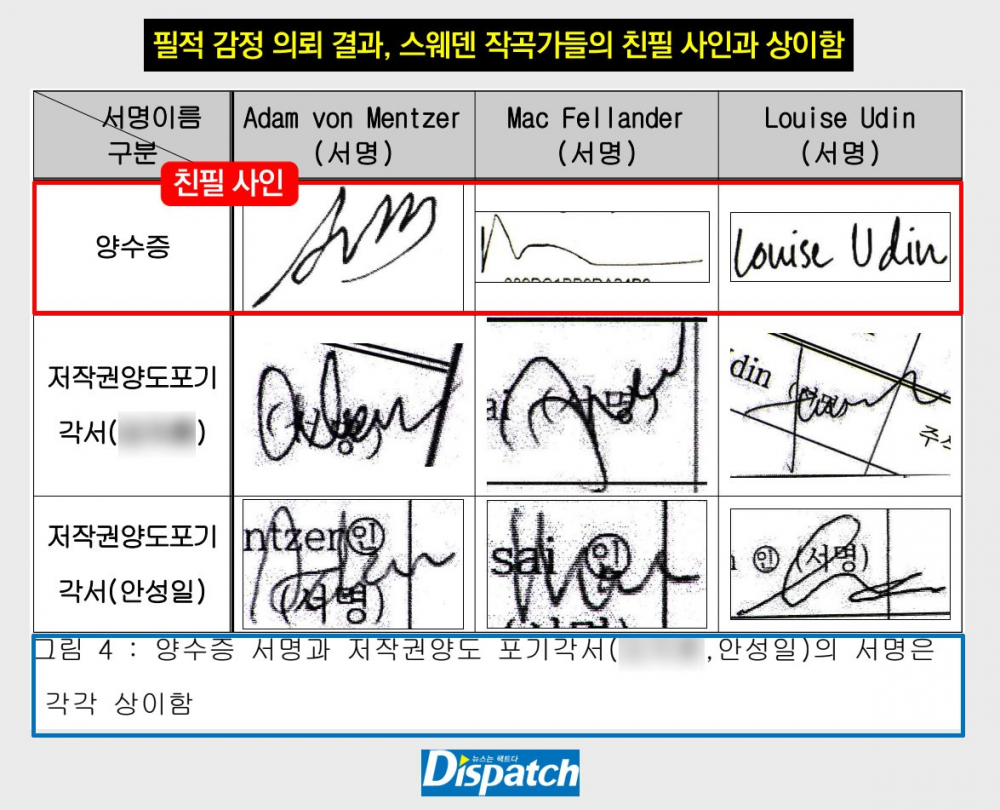 필적 감정 의뢰 결과, 스웨덴 작곡가들의 친필 사인과 상이함
서명이름
구분
Adam von Mentzer
(서명)
Mac Fellander
(서명)
Louise Udin
(서명)
친필 사인
양수증
Louise Udin
저작권양도포기
각서( )
(서명)
ai (서명)
din
주
저작권양도포기
각서(안성일)
ntzer㊞
(서명)
sai ㊞
㊞ (서명)
그림 4 : 양수증 서명과 저작권양도 포기각서( ,안성일)의 서명은
각각 상이함
뉴스는 팩트다
Dispatch